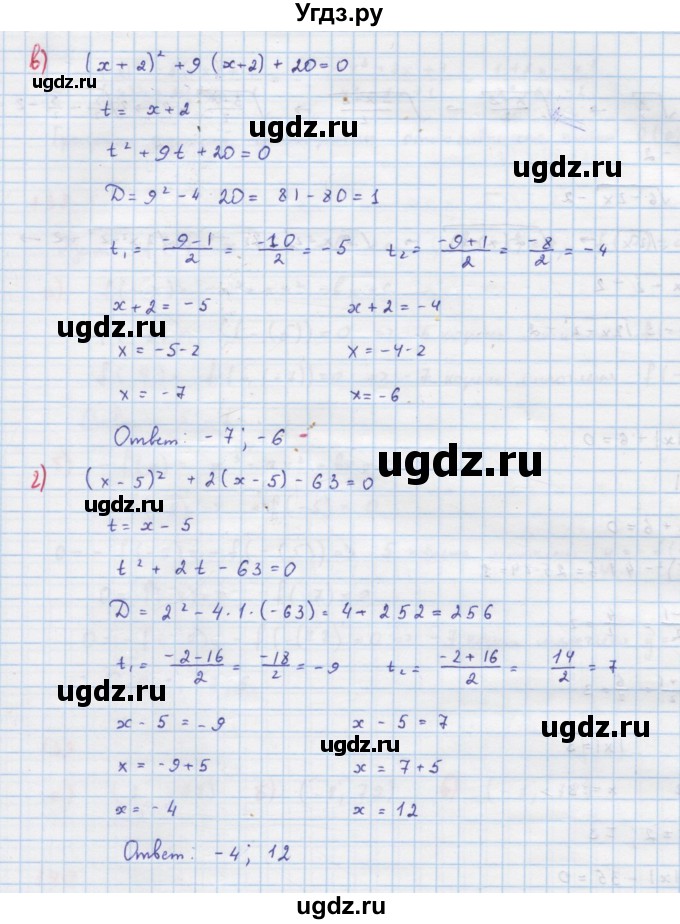 Угдз.ру
в) (x + 2)² + 9 (x+2) + 20 = 0
ugdz.ru
t = x + 2
ugdz.ru
t² + 9t + 20 = 0
ugdz.ru
D = 9² - 4 20 = 81 - 80 = 1
ugdz.ru ugdz.ru
t₁ = (-9-1)/2 = -10/2 = -5 t₂ = (-9+1)/2 = -8/2 = -4
x + 2 = -5 x + 2 = -4
ugdz.ru ugdz.ru
x = -5-2 x = -4-2
x = -7 x = -6
Ответ: -7; -6
ugdz.ru
г) (x - 5)² + 2(x - 5) - 63 = 0
ugdz.ru
t = x - 5
ugdz.ru
t² + 2t - 63 = 0
D = 2² - 4·1·(-63) = 4 + 252 = 256
t₁ = (-2-16)/2 = -18/2 = -9 t₂ = (-2+16)/2 = 14/2 = 7
ugdz.ru
x - 5 = -9 x - 5 = 7
ugdz.ru
ugdz.ru
x = -9+5 x = 7+5
x = -4 x = 12
ugdz.ru
Ответ: -4; 12
ugdz.ru
ugdz.ru